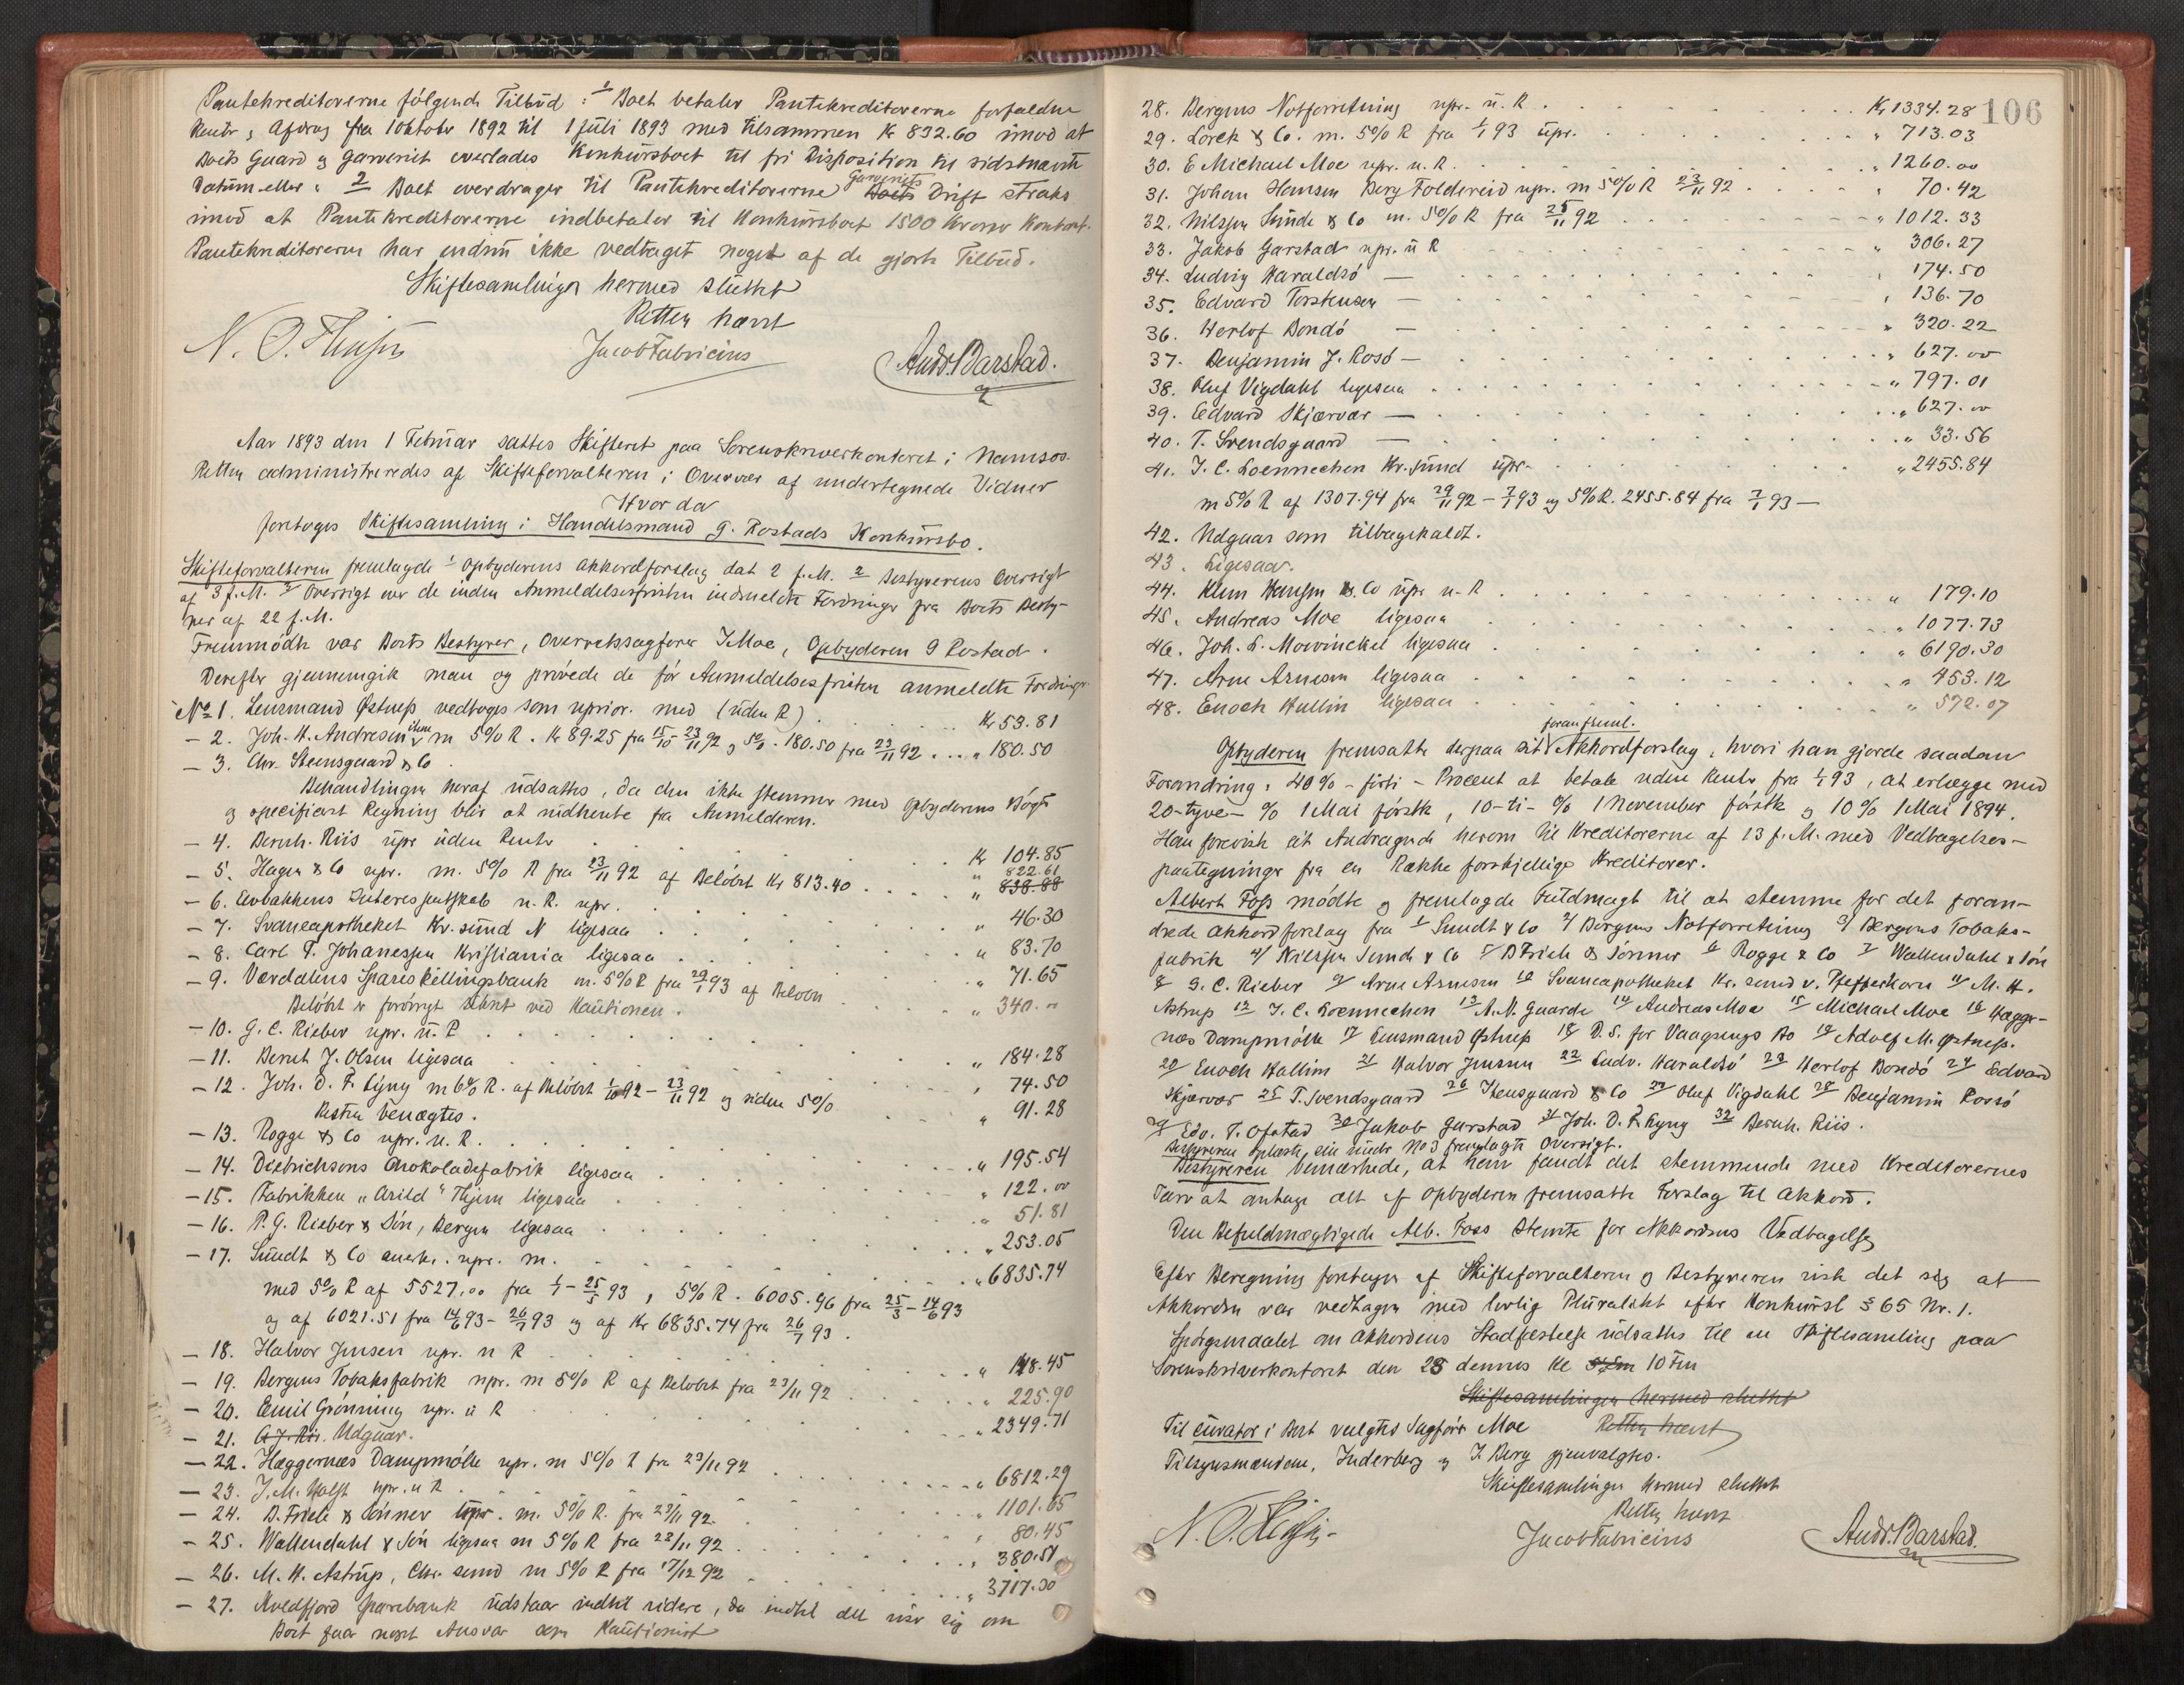 Pantekreditorerne følgende Tilbud: 1/ Boet betaler Pantekreditorerne forfaldne
Renter & Afdrag fra 1 Oktober 1892 til 1 Juli 1893 med tilsammen Kr 832.60 imod at
Boets Gaard og Garveriet overlades Konkursboet til fri Disposition til sidstnævnte
Datum eller 2 Boet overdrager til Pantekreditorerne Garveriets Drift straks
imod at Pantekreditorerne indbetaler til Konkursboet 1500 Kroner Kontant.
Pantekreditorerne har endnu ikke vedtaget noget af de gjorte Tilbud.
Skiftesamlingen hermed sluttet
Retten hævet
Jacob Fabricius
Andr. Barstad.
Aar 1893 den 1 Februar sattes Skifteret paa Sorenskriverkontoret i Namsos.
Retten administreredes af Skifteforvalteren i Overvær af undertegnede Vidner
Hvor da
foretoges Skiftesamling i Handelsmand G. Rostads Konkursbo.
Skifteforvalteren fremlagde 1 Opbyderens Akkordforslag dat 2 f.M. 2 Bestyrerens Oversigt
af 3 f.M. 3/ Oversigt over de inden Anmeldelsesfristen indmeldte Fordringer fra Boets Besty-
rer af 22 f.M.
Fremmødte var Boets Bestyrer, Overretssagfører I Moe, Opbyderen G Rostad.
Derefter gjennemgik man og prøvede de før Anmeldelsesfristen anmeldte Fordringer
No 1. Lensmand Østnes vedtoges som uprior. med (uden R) . . . Kr 53.81
- 2. Joh. H. Andresen m 5% R. Kr 89.25 fra 15/10 - 23/11 92 og 5% . 180.50 fra 23/11 92 . . . " 180.50
- 3. Chr. Steensgaard & Co
Behandlingen heraf udsattes, da den ikke stemmer med Opbyderens Bøger
og specificert Regning blir at indhente fra Anmelderen.
- 4. Bernh. Riis upr uden Renter . . . Kr 104.85
- 5. Hagen & Co upr. m. 5% R fra 23/11 92 af Beløbet Kr 813.40 . . . " 822.61 838.88
- 6. Evbakkens Interessentskab u. R. upr. . . . " 46.30
- 7. Svaneapotheket Kr.sund N ligesaa . . . " 83.70
- 8. Carl F. Johanessen Kristiania ligesaa . . . " 71.65
- 9. Værdalens Spareskillingsbank m. 5% R fra 29/1 93 af Beløbet . . . " 340.00
Beløbet er forøvrigt sikret ved Kautionen.
- 10. G. C. Rieber upr. u. R . . . " 184.28
- 11. Bernt J. Olsen ligesaa . . . " 74.50
- 12. Joh. D. F. Lyng m 6% R. af Beløbet 1/10 92 - 23/11 92 og siden 5% . . . " 91.28
Resten benægtes.
- 13. Rogge & Co upr. u. R. . . . " 195.54
- 14. Dietrichsons Chokoladefabrik ligesaa . . . " 122.00
- 15. Fabrikken "Arild" Thjem ligesaa . . . " 51.81
- 16. P. G. Rieber & Søn, Bergen ligesaa . . . " 253.05
- 17. Sundt & Co anerk. upr. m. . . . " 6835.74
med 5% R af 5527.00 fra 1/1 - 25/3 93, 5% R. 6005.96 fra 25/3 - 14/6 93
og af 6021.51 fra 14/6 93 - 26/7 93 og af Kr 6835.74 fra 26/7 93.
- 18. Halvor Jensen upr. u R . . . " 118.45
- 19. Bergens Tobaksfabrik upr. m 5% R af Beløbet fra 23/11 92 . . . " 225.90
- 20. Emil Grønning upr. u R . . . " 2349.71
- 21. Udgaar.
- 22. Hæggernæs Dampmølle upr. m 5% R fra 23/11 92 . . . " 6812.29
- 23. J. M. Holst upr. u R . . . " 1101.65
- 24. B. Friele & Sønner upr. m. 5% R. fra 23/11 92 . . . " 80.45
- 25. Wallendahl & Søn ligesaa m 5% R fra 23/11 92 . . . " 380.51
- 26. M. H. Astrup, Chr. sund m 5% R fra 17/12 92 . . . " 3717.30
- 27. Kvedfjord Sparebank udstaar indtil videre, da indtil det viser sig om
Boet faar noget Ansvar som Kautionist
106
28. Bergens Notforretning upr. u. R . . . Kr 1334.28
29. Lorck & Co. m. 5% R fra 1/1 93 upr. . . . " 713.03
30. E Michael Moe upr. u. R. . . . " 1260.00
31. Johan Hansen Berg Foldereid upr. m 5% R 23/11 92 . . . " 70.42
32. Nilssen Sunde & Co m. 5% R fra 25/11 92 . . . " 1012.33
33. Jakob Garstad upr. u R . . . " 306.27
34. Ludvig Haraldsø — . . . " 174.50
35. Edvard Torstensen — . . . " 136.70
36. Herlof Bondø — . . . " 320.22
37. Benjamin J. Rosø — . . . " 627.00
38. Oluf Vigdahl ligesaa . . . " 797.01
39. Edvard Skjærvær — . . . " 627.00
40. T. Svendsgaard — . . . " 33.56
41. J. C. Loennechen Kr.sund upr. . . . " 2455.84
m 5% R af 1307.94 fra 29/11 92 - 7/1 93 og 5% R. 2455.84 fra 7/1 93 —
42. Udgaar som tilbagekaldt.
43. Ligesaa.
44. Klem Hansen & Co upr u. R . . . " 179.10
45. Andreas Moe ligesaa . . . " 1077.73
46. Joh. L. Mowinckel ligesaa . . . " 6190.30
47. Arne Arnesen ligesaa . . . " 453.12
48. Enoch Hallin ligesaa . . . " 572.07
Opbyderen fremsatte derpaa sit foran freml. Akkordforslag, hvori han gjorde saadan
Forandring: 40% - førti - Procent at betale uden Renter fra 1/1 93, at erlægge med
20-tyve-% 1 Mai førstk, 10-ti-% 1 November førstk og 10% 1 Mai 1894.
Han foreviste et Andragende herom til Kreditorerne af 13 f.M. med Vedtagelses-
paategninger fra en Række forskjellige Kreditorer.
Albert Foss mødte og fremlagde Fuldmagt til at stemme for det foran-
drede Akkordforslag fra 1 Sundt & Co 2/ Bergens Notforretning 3/ Bergens Tobaks-
fabrik 4/ Nilssen Sunde & Co 5/ B Friele & Sønner 6 Rogge & Co 7/ Wallendahl & Søn
8 G. C. Rieber 9/ Arne Arnesen 10 Svaneapotheket Kr. sund v. Pfefferkorn 11/ M. H.
Astrup 12 J. C. Loennechen 13 A. N. Gaarde 14 Andreas Moe 15 Michael Moe 16 Hægger-
næs Dampmølle 17 Lensmand Østnes 18 D. S. for Vaagsnes Bo 19 Adolf M. Østnes.
20/ Enoch Hallin 21 Halvor Jensen 22 Ludv. Haraldsø 23 Herlof Bondø 24 Edvard
Skjærvær 25 T. Svendsgaard 26 Steensgaard & Co 27 Oluf Vigdahl 28 Benjamin Rossø
29 Edv. T. Ofstad 30 Jakob Garstad 31 Joh. D. F. Lyng 32 Bernh. Riis.
Bestyreren oplæste sin under No 3 fremlagte Oversigt.
Bestyreren bemærkede, at han fandt det stemmende med Kreditorernes
Tarv at antage det af Opbyderen fremsatte Forslag til Akkord.
Den Befuldmægtigede Alb. Foss stemte for Akkordens Vedtagelse
Efter Beregning foretagen af Skifteforvalteren og Bestyreren viste det sig at
Akkorden var vedtagen med lovlig Pluralitet efter Konkursl § 65 Nr. 1.
Spørgsmaalet om Akkordens Stadfæstelse udsattes til en Skiftesamling paa
Sorenskriverkontoret den 25 dennes Kl 10 Fm
Skiftesamlingen hermed sluttet
Til Curator i Boet valgtes Sagfører Moe Retten hævet
Tilsynsmændene, Inderberg og I. Berg gjenvalgtes.
Skiftesamlingen hermed sluttet
Retten hævet
Jacob Fabricius
Andr. Barstad.